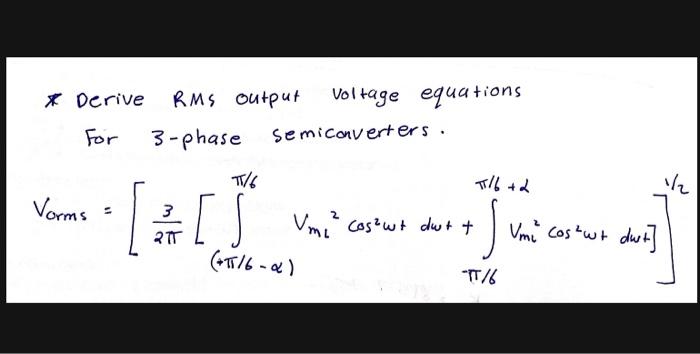 * Derive RMS output Voltage equations
For 3-phase semiconverters.
Vorms = [ 3/2π [ ∫_(+π/6-α)^π/6 Vmi² cos²wt dwt + ∫_-π/6^π/6+α Vmi² cos²wt dwt] ]^1/2